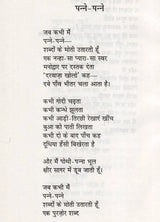 पन्ने-पन्ने
जब कभी मैं
पन्ने-पन्ने—
शब्दों के मोती उतारती हूँ
एक नन्हा-सा प्यारा-सा स्वर
मनोद्वार पर दस्तक देता
'दरवाज़ा खोलो' कह—
दबे पाँव भीतर चला आता है।
कभी गोदी चढ़ता
कभी कन्धे झूलता
कभी आड़ी-तिरछी रेखाएं खींच
बुआ को पाती लिखता
कभी दो के बाद पाँच कह
दूधिया हँसी बिखेरता है
और मैं पोथी-पन्ना भूल
क्षीर सागर में डूब जाती हूँ।
जब कभी मैं
पन्ने-पन्ने
शब्दों के मोती उतारती हूँ
एक पुरज़ोर शब्द